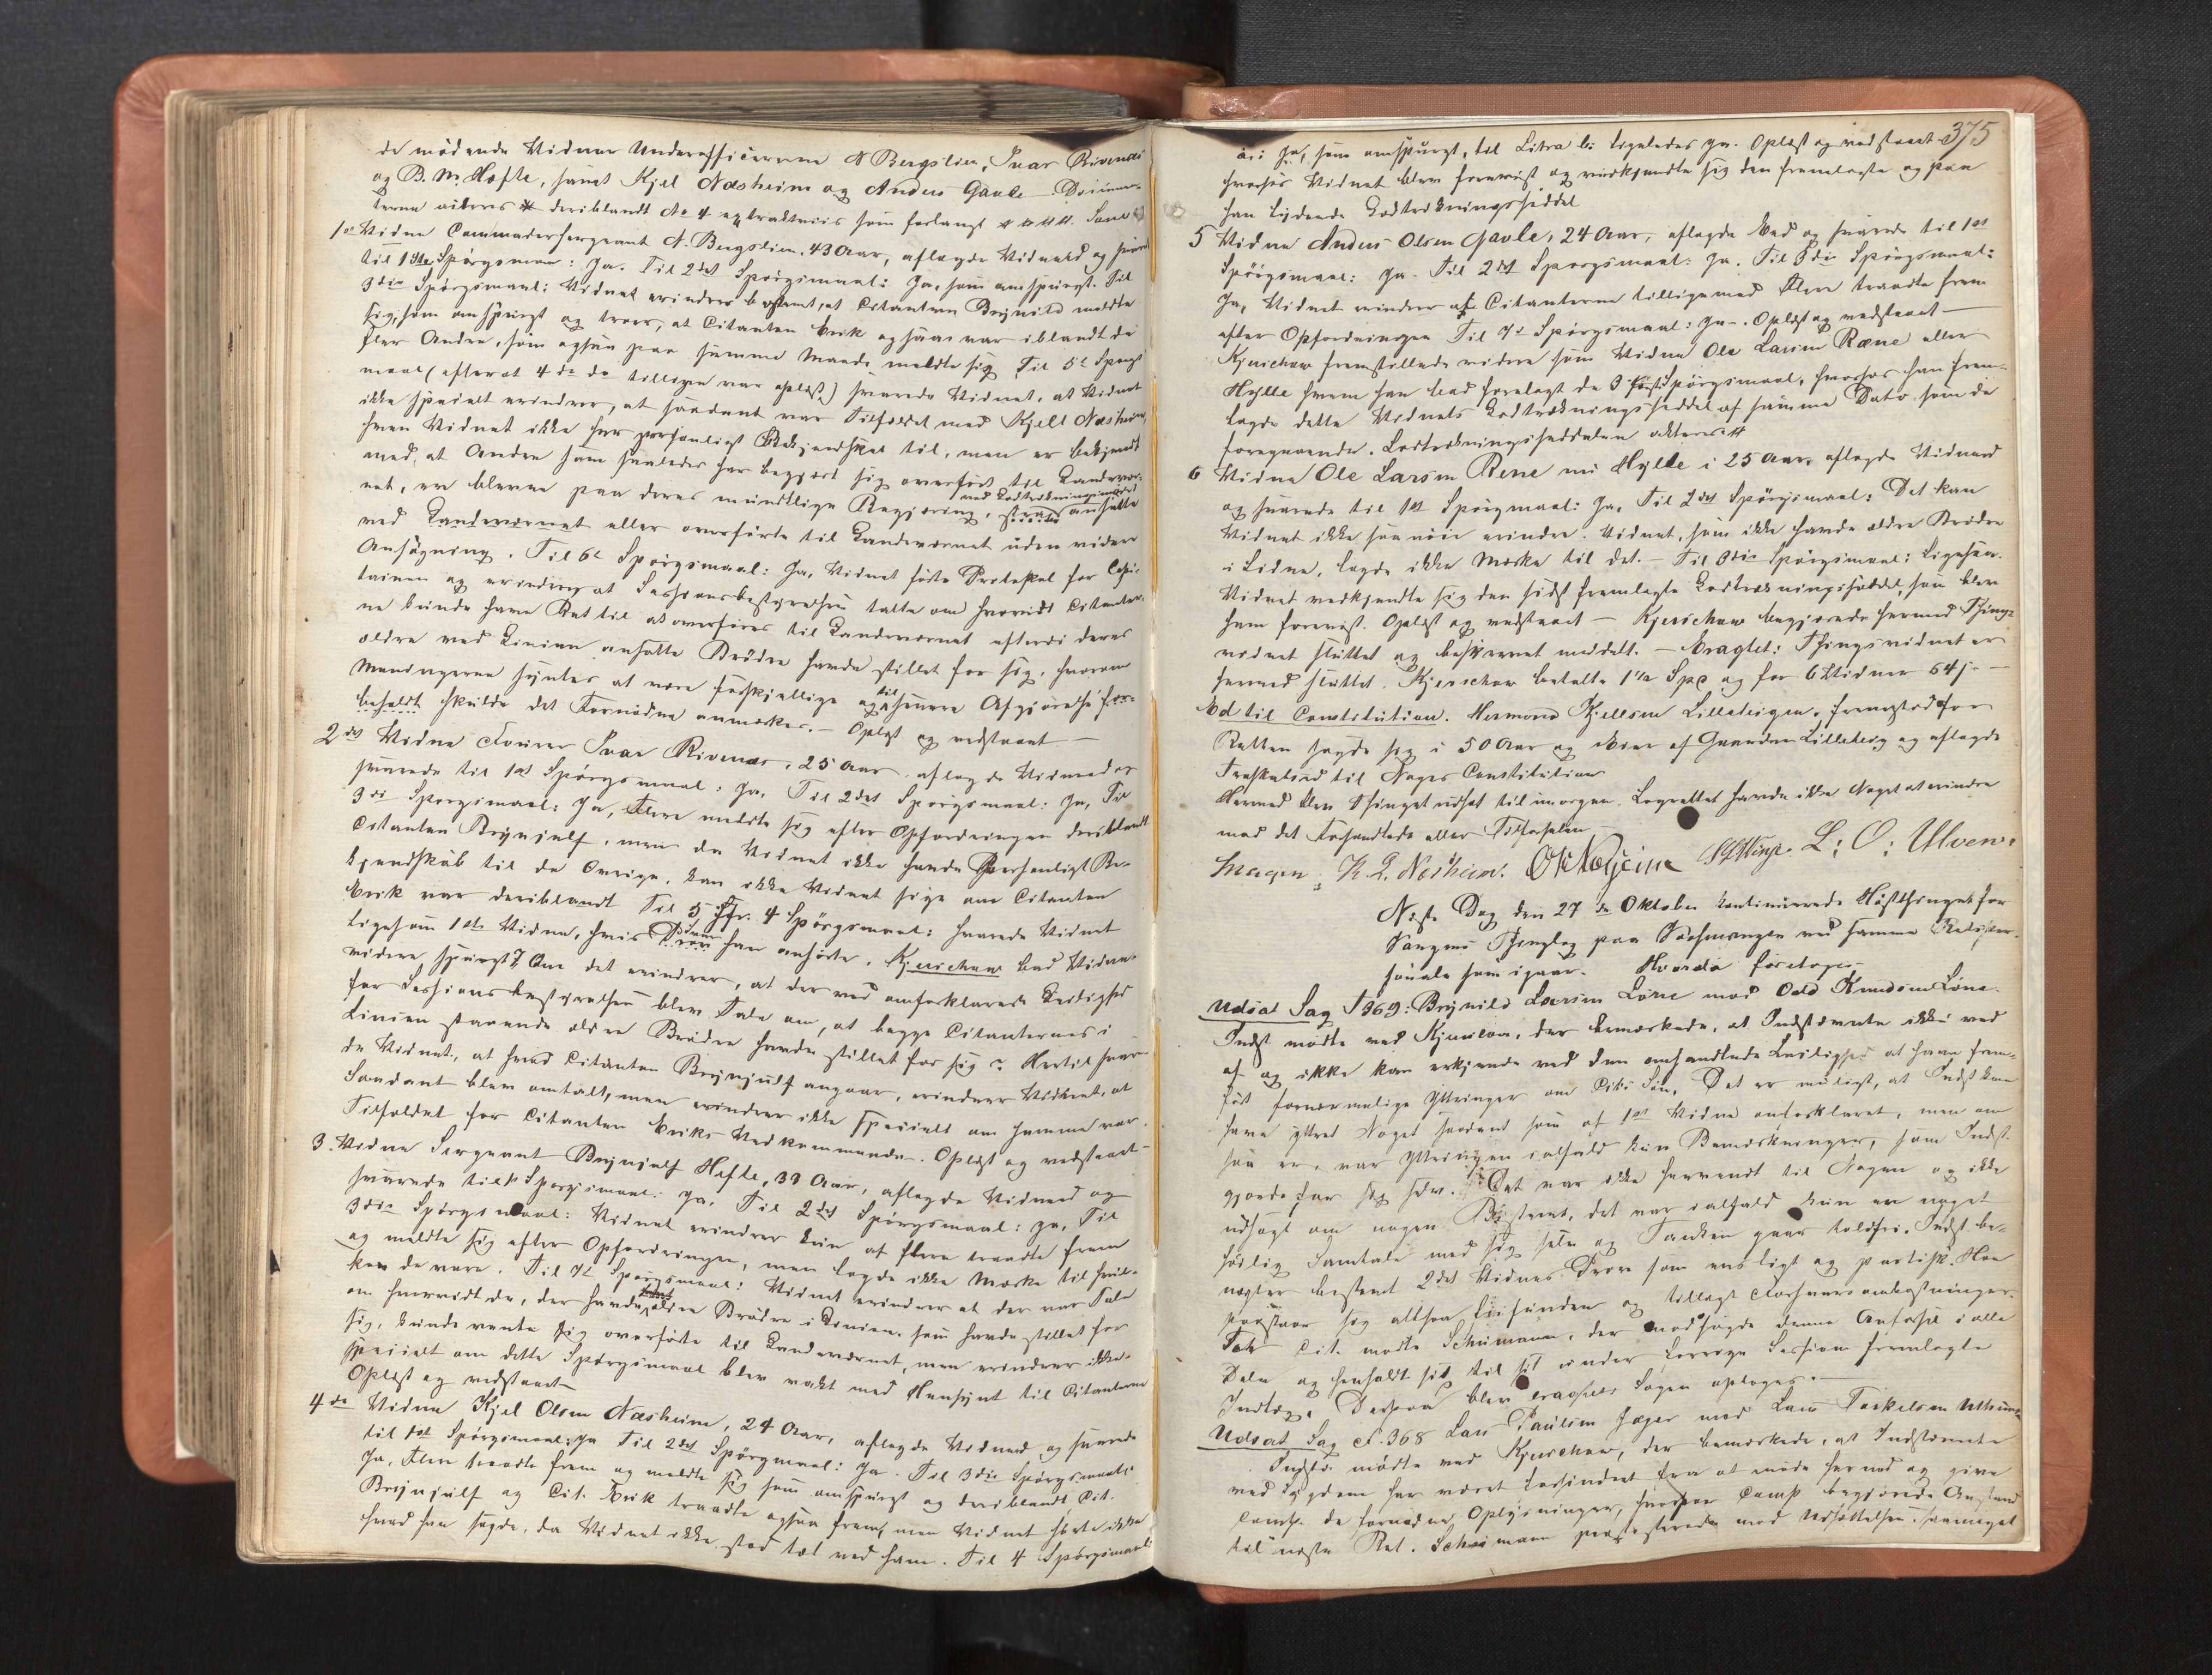 de mødende Vidner Underofficererne N Bergslien, Ivar Rivenæs
og B. M. Hæfte, samt Kjel Næsheim og Anders Gavle.
deriblandt No 4 extraktviis som forlangt
1ste Vidne Commandersergeant N. Bergslien, 43 Aar, aflagde Vidneed og svared
til 1ste Spørgsmaal: Ja. Til 2det Spørgsmaal: Ja, som omspurgt. Til
3die Spørgsmaal: Vidnet erindrer bestemt, at Citanten Brynild meldte
sig, som omspurgt og troer, at Citanten Erik ogsaa var iblandt de
fler Andre, som ogsaa paa samme Maade meldte sig. Til 5te Spørgs-
maal (efterat 4de do tilligen var oplæst) svarede Vidnet, at Vidnet
ikke specielt erindrer, at saadant var Tilfældet med Kjell Næsheim,
hvem Vidnet ikke har personligt Bekjendtskab til, men er bekjendt
med, at Andre som saaledes har begjært sig overført til Landevær-
net, ere blevne paa deres mundtlige Begjæring, strax ansatte
ved Lodtrækningen
ved Landeværnet eller overførte til Landeværnet uden videre
Ansøgning. Til 6te Spørgsmaal: Ja, Vidnet førte Protokol for Capi-
tainen og erindrer, at Sessionsbestyrelsen talte om hvorvidt Citanter-
ne kunde have Ret til at overføres til Landeværnet efterdi deres
ældre ved Linien ansatte Brødre havde stillet for sig, hvorom
Meningerne syntes at være forskjellige og til senere Afgjørelse for-
beholdt skulde det Fornødne anmærkes. – Oplæst og vedstaaet –
2det Vidne Fourer Ivar Rivenæs, 25 Aar aflagde Vidneed og
svarede til 1ste Spørgsmaal: Ja. Til 2det Spørgsmaal: Ja, Til
3die Spørgsmaal: Ja, Flere meldte sig efter Opfordringen deriblandt
Citanten Brynjulf, men da Vidnet ikke havde Personligt Be-
kjendtskab til de Øvrige, kan ikke Vidnet sige om Citanten
Erik var deriblandt Til 5 jfr. 4 Spørgsmaal: svarede Vidnet
ligesom 1ste Vidne, hvis Svar han anhørte. Kjerschow bad Vidnet
videre spurgt? Om det erindrer, at der ved omforklarede Leilighed
for Sessionsbestyrelsen blev Tale om, at begge Citanternes i
Linien staaende ældre Brødre havde stillet for sig? Hertil svare-
de Vidnet, at hvad Citanten Brynjulf angaar, erindrer Vidnet, at
Saadant blev omtalt, men erindrer ikke specielt om samme var
Tilfældet for Citanten Eriks Vedkommende. Oplæst og vedstaaet –
3. Vidne Sergeant Brynjulf Hefte, 38 Aar, aflagde Vidneed og
svarede til 1 Spørgsmaal: Ja. Til 2det Spørgsmaal: ja, Til
3die Spørgsmaal: Vidnet erindrer kun at flere traadte frem
og meldte sig efter Opfordringen, men lagde ikke Mærke til hvil-
ken de vare. Til 7de Spørgsmaal: Vidnet erindrer at der var Tale
om hvorvidt de, der havde ældre Brødre i Linien, som havde stillet for
sig, kunde vente sig overførte til Landeværnet, men erindrer ikke
specielt om dette Spørgsmaal blev vakt med Hensynt til Citanterne
Oplæst og vedstaaet
4de Vidne Kjel Olsen Næsheim, 24 Aar, aflagde Vidneed og svarede
til 1ste Spørgsmaal: Ja Til 2det Spørgsmaal: Ja. Til 3die Spørgsmaal:
Ja, Flere traadte frem og meldte sig som omspurgt og deriblandt Cit.
Brynjulf og Cit. Erik traadte ogsaa frem, men Vidnet hørte ikke
hvad han sagde, da Vidnet ikke stod tæt ved ham. Til 4 Spørgsmaal:
375
a: Ja, som omspurgt, til Litra b: ligeledes ja. Oplæst og vedstaaet
hvorhos Vidnet blev foreviist og vedkjendte sig den fremlagte og paa
ham lydende Lodtrækningsseddel
5 Vidne Anders Olsen Gavle, 24 Aar, aflagde Eed og svarede til 1ste
Spørgsmaal: Ja. Til 2det Spørgsmaal: Ja. Til 3die Spørgsmaal:
Ja, Vidnet erindrer at Citanterne tilligemed Flere traadte frem
efter Opfordringen Til 7de Spørgsmaal: Ja. Oplæst og vedstaaet –
Kjerschow fremstillede videre som Vidne Ole Larsen Rene eller
Hylle hvem han bad forelagt de 3 første Spørgsmaal, hvorhos han frem-
lagde dette Vidnets Lodtrækningsseddel af samme Dato som de
foregaaende. Lodtrækningsseddelen akteres
6 Vidne Ole Larsen Rene nu Hylle i 25 Aar, aflagde Vidneed
og svarede til 1ste Spørgmaal: Ja, Til 2det Spørgsmaal: Det kan
Vidnet ikke saa nøie erindre. Vidnet, som ikke havde ældre Brødre
i Linien, lagde ikke Mærke til det. – Til 3die Spørgsmaal: Ligesaa.
Vidnet vedkjendte sig den sidst fremlagte Lodtrækningsseddel, som blev
ham foreviist. Oplæst og vedstaaet – Kjerschow begjærede hermed Things-
vidnet sluttet og beskrevet meddelt. – Eragtet: Thingsvidnet er
hermed sluttet. Kjerschow betalte 1½ Spd og for 6 Vidner 64 s. –
Ed til Constitution. Hermond Kjellsen Lilleteigen, fremstod for
Retten sagde sig i 50 Aar og Eier af Gaarden Lilleteig og aflagde
Troskabsed til Norges Constitution
Hermed blev Thinget udsat til imorgen. Lagrettet havde ikke Noget at erindre
mod det Forhandlede eller Tilførselen
K. L. Næsheim. L: O: Ulven.
Næste Dag den 27de Oktober kontinuerede Høstthinget for
Vangens Thinglag paa Vossevangen ved samme Retsper-
sonale som igaar. Hvorda foretoges
Udsat Sag No 369: Brynild Larsen Løne mod Odd Knudsen Løne.
Indst mødte ved Kjerschow, der bemærkede, at Indstævnte ikke ved
af og ikke kan erkjende ved den omhandlede Leilighed at have frem-
ført fornærmelige Yttringer om Cits Søn, Det er muligt, at Indst kan
have yttret Noget saadant som af 1ste Vidne omforklaret, men om
saa er, var Yttringen ialfald kun Bemærkninger, som Indst.
gjorde for sig selv. Det var ikke henvendt til Nogen og ikke
udsagt om nogen Bestemt, det var ialfald kun en noget
høilig Samtale med sig selv og Tanken gaar toldfri. Indst be-
nægter bestemt 2det Vidnes Prov som ensligt og partisk. Han
paastaar sig altsaa frifunden og tillagt Forsvarsomkostninger.
For Cit. mødte Schumann, der modsagde denne Anførsel i alle
Dele og henholdt sig til sit under forrige Session fremlagte
Indlæg. Derpaa blev eragtet: Sagen optages. –
Udsat Sag No. 368 Lars Paulsen Jæger mod Lars Torkelsen
Indst. mødte ved Kjerschow, der bemærkede, at Indstævnte
ved Sygdom har været forhindret fra at møde herved og give
Comp. de fornødne Oplysninger, hvorfor Comp begjærede Anstand
til næste Ret. Schumann protesterede mod Udsættelsen, saameget